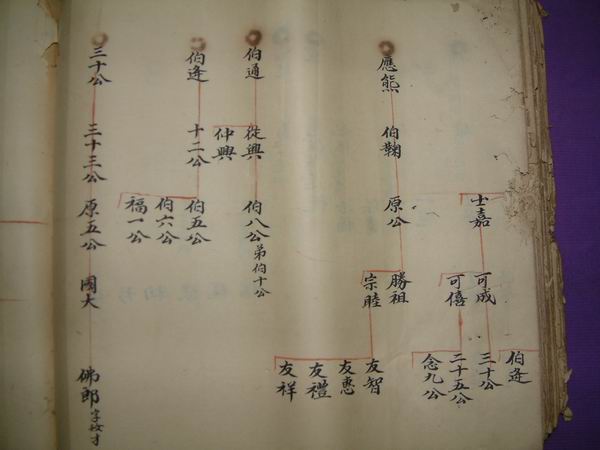 士嘉
可成
可僖
伯逢
三十公
二十五公
念九公
應熊
伯鞠
原公
勝祖
宗睦
友智
友惠
友禮
友祥
伯通
從興
仲興
伯八公弟伯十公
伯逢
十二公
伯五公
伯六公
福一公
三十公
三十三公
原五公
國大
佛郎